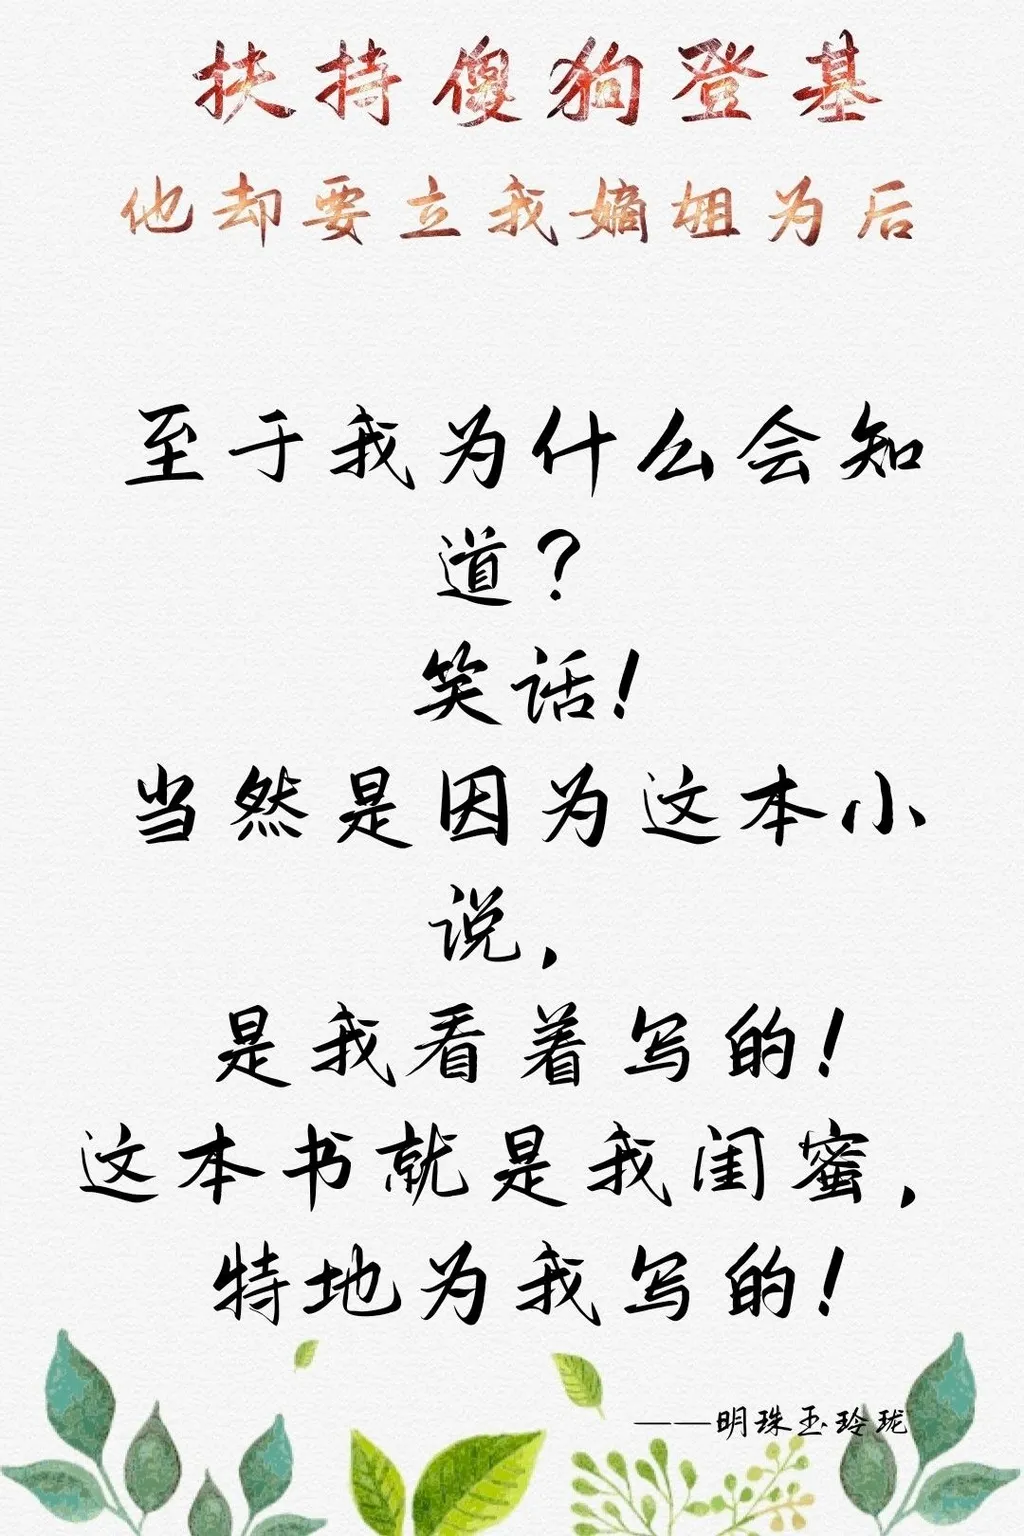 扶持傻狗登基
他却要立我嫡姐为后
至于我为什么会知
道？
笑话！
当然是因为这本小
说，
是我看着写的！
这本书就是我闺蜜，
特地为我写的！
——明珠玉玲珑